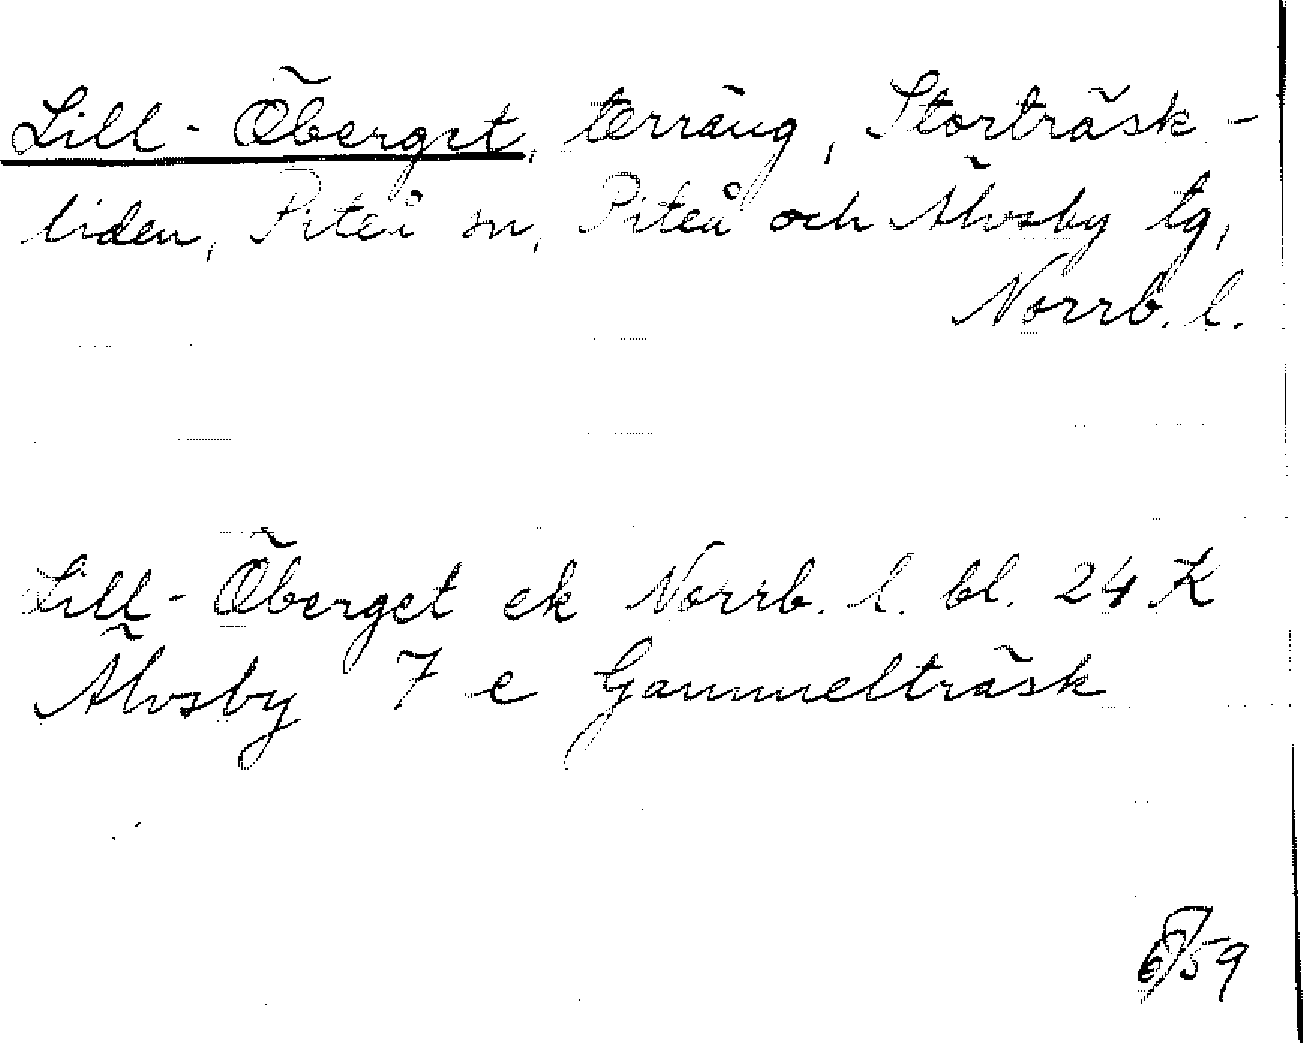 Lill-Öberget, terräng, Storträsk-
liden, Piteå sn, Piteå och Älvsby tg,
Norrb. l.
Lill-Öberget ek Norrb. l. bl. 24 K
Älvsby 7 e Gammelträsk
59